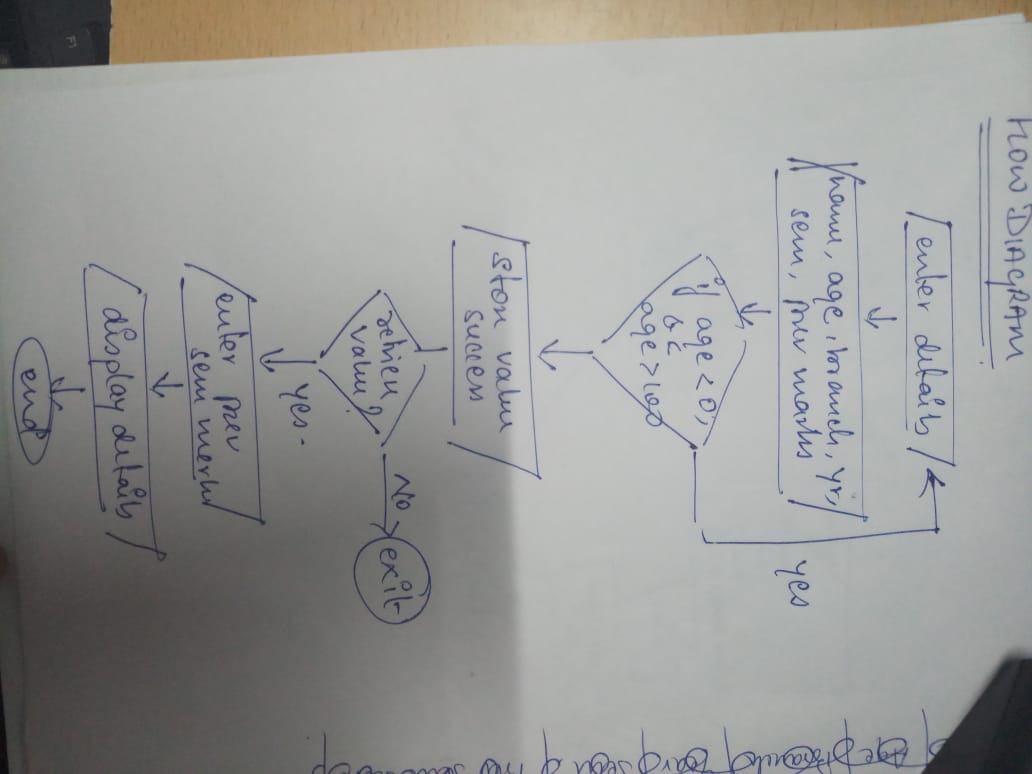 FLOW DIAGRAM
enter details
name, age, branch, yr,
sem, prev marks
if age < 0,
&
age > 100
yes
store value
success
retrieve
value?
No
exit
yes.
enter prev
sem marks
display details
end
F1